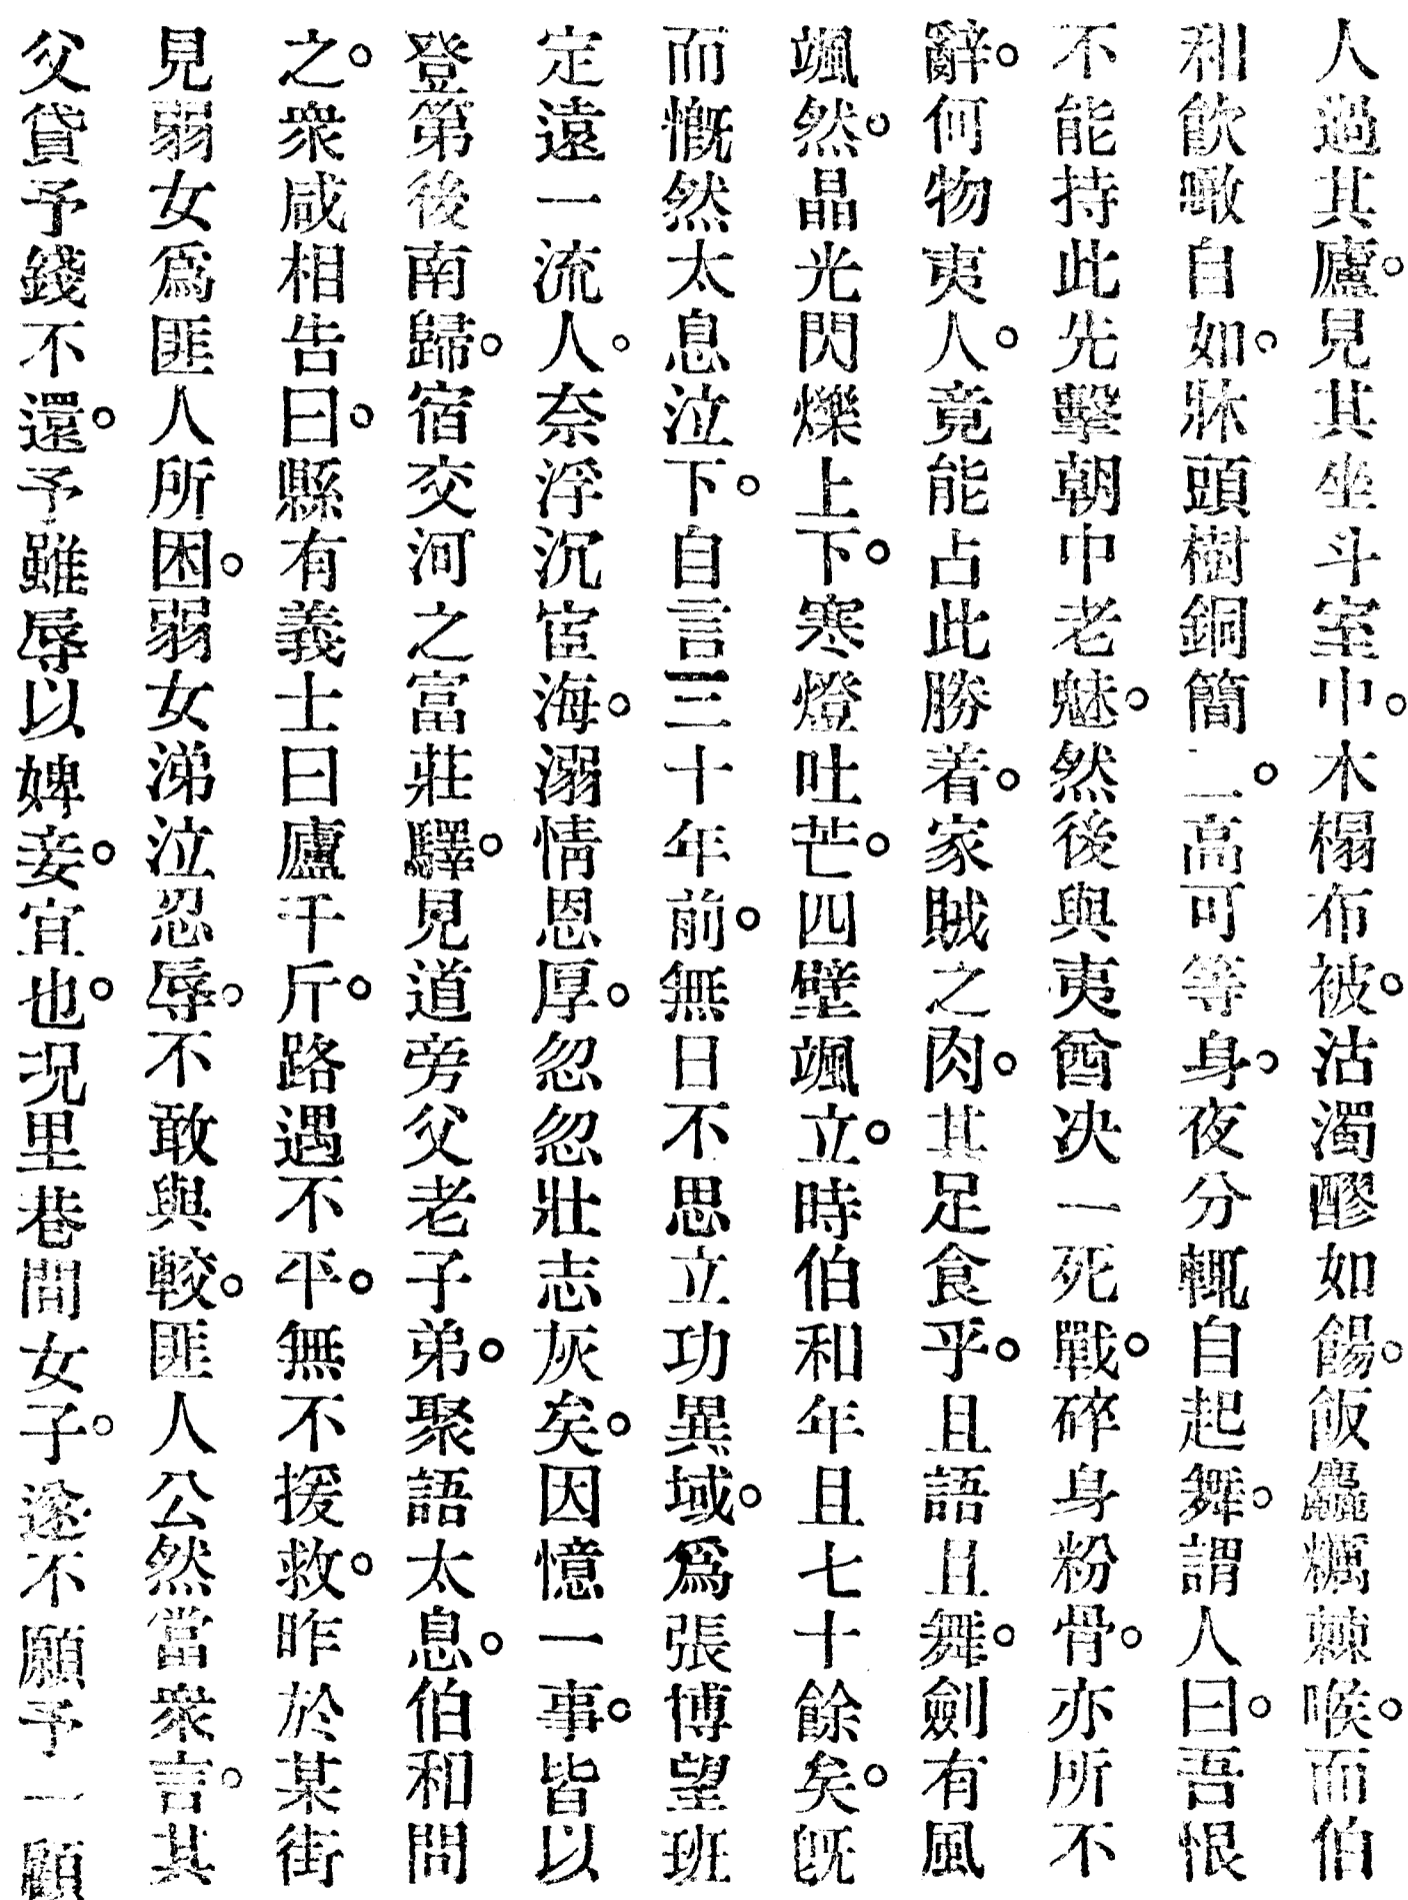 人過其廬。見其坐斗室中。木榻布被。沽濁醪如餳。飯麤糲棘喉。而伯
和飲噉自如。牀頭樹銅簡二。高可等身。夜分輒自起舞。謂人曰。吾恨
不能持此先擊朝中老魅。然後與夷酋决一死戰。碎身粉骨。亦所不
辭。何物夷人。竟能占此勝着。家賊之肉。其足食乎。且語且舞。劍有風
颯然。晶光閃爍上下。寒燈吐芒。四壁颯立。時伯和年且七十餘矣。旣
而慨然太息泣下。自言三十年前。無日不思立功異域。爲張博望班
定遠一流人。奈浮沉宦海。溺情恩厚。忽忽壯志灰矣。因憶一事。皆以
登第後南歸。宿交河之富莊驛。見道旁父老子弟。聚語太息。伯和問
之。衆咸相告曰。縣有義士曰廬千斤。路遇不平。無不援救。昨於某街
見弱女爲匪人所困。弱女涕泣忍辱。不敢與較。匪人公然當衆言。其
父貸予錢不還。予雖辱以婢妾。宜也。况里巷間女子。遂不願予一顧